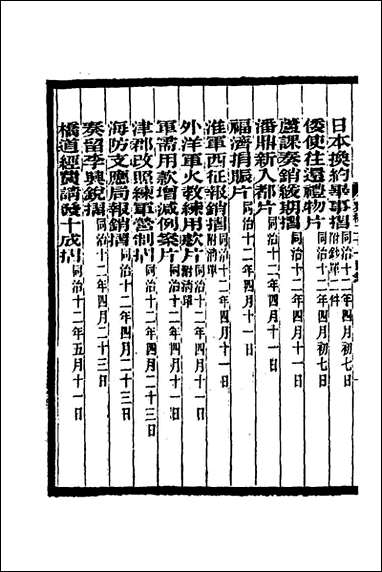 日本換約畢事摺 附鈔單一件 同治十二年四月初七日
倭使往還禮物片 同治十二年四月初七日
蘆課奏銷綏期摺 同治十二年四月十一日
潘鼎新入都片 同治十二年四月十一日
福濟捐賑片 同治十二年四月十一日
淮軍西征報銷摺 附清單 同治十二年四月十一日
外洋軍火教練用款片 附清單 同治十二年四月十一日
軍需用款增減例案片 同治十二年四月十一日
津郡改照練軍營制片 同治十二年四月二十三日
海防支應局報銷摺 同治十二年四月二十三日
奏留李興銳摺 同治十二年四月二十三日
橋道經費請發十成片 同治十二年五月十一日